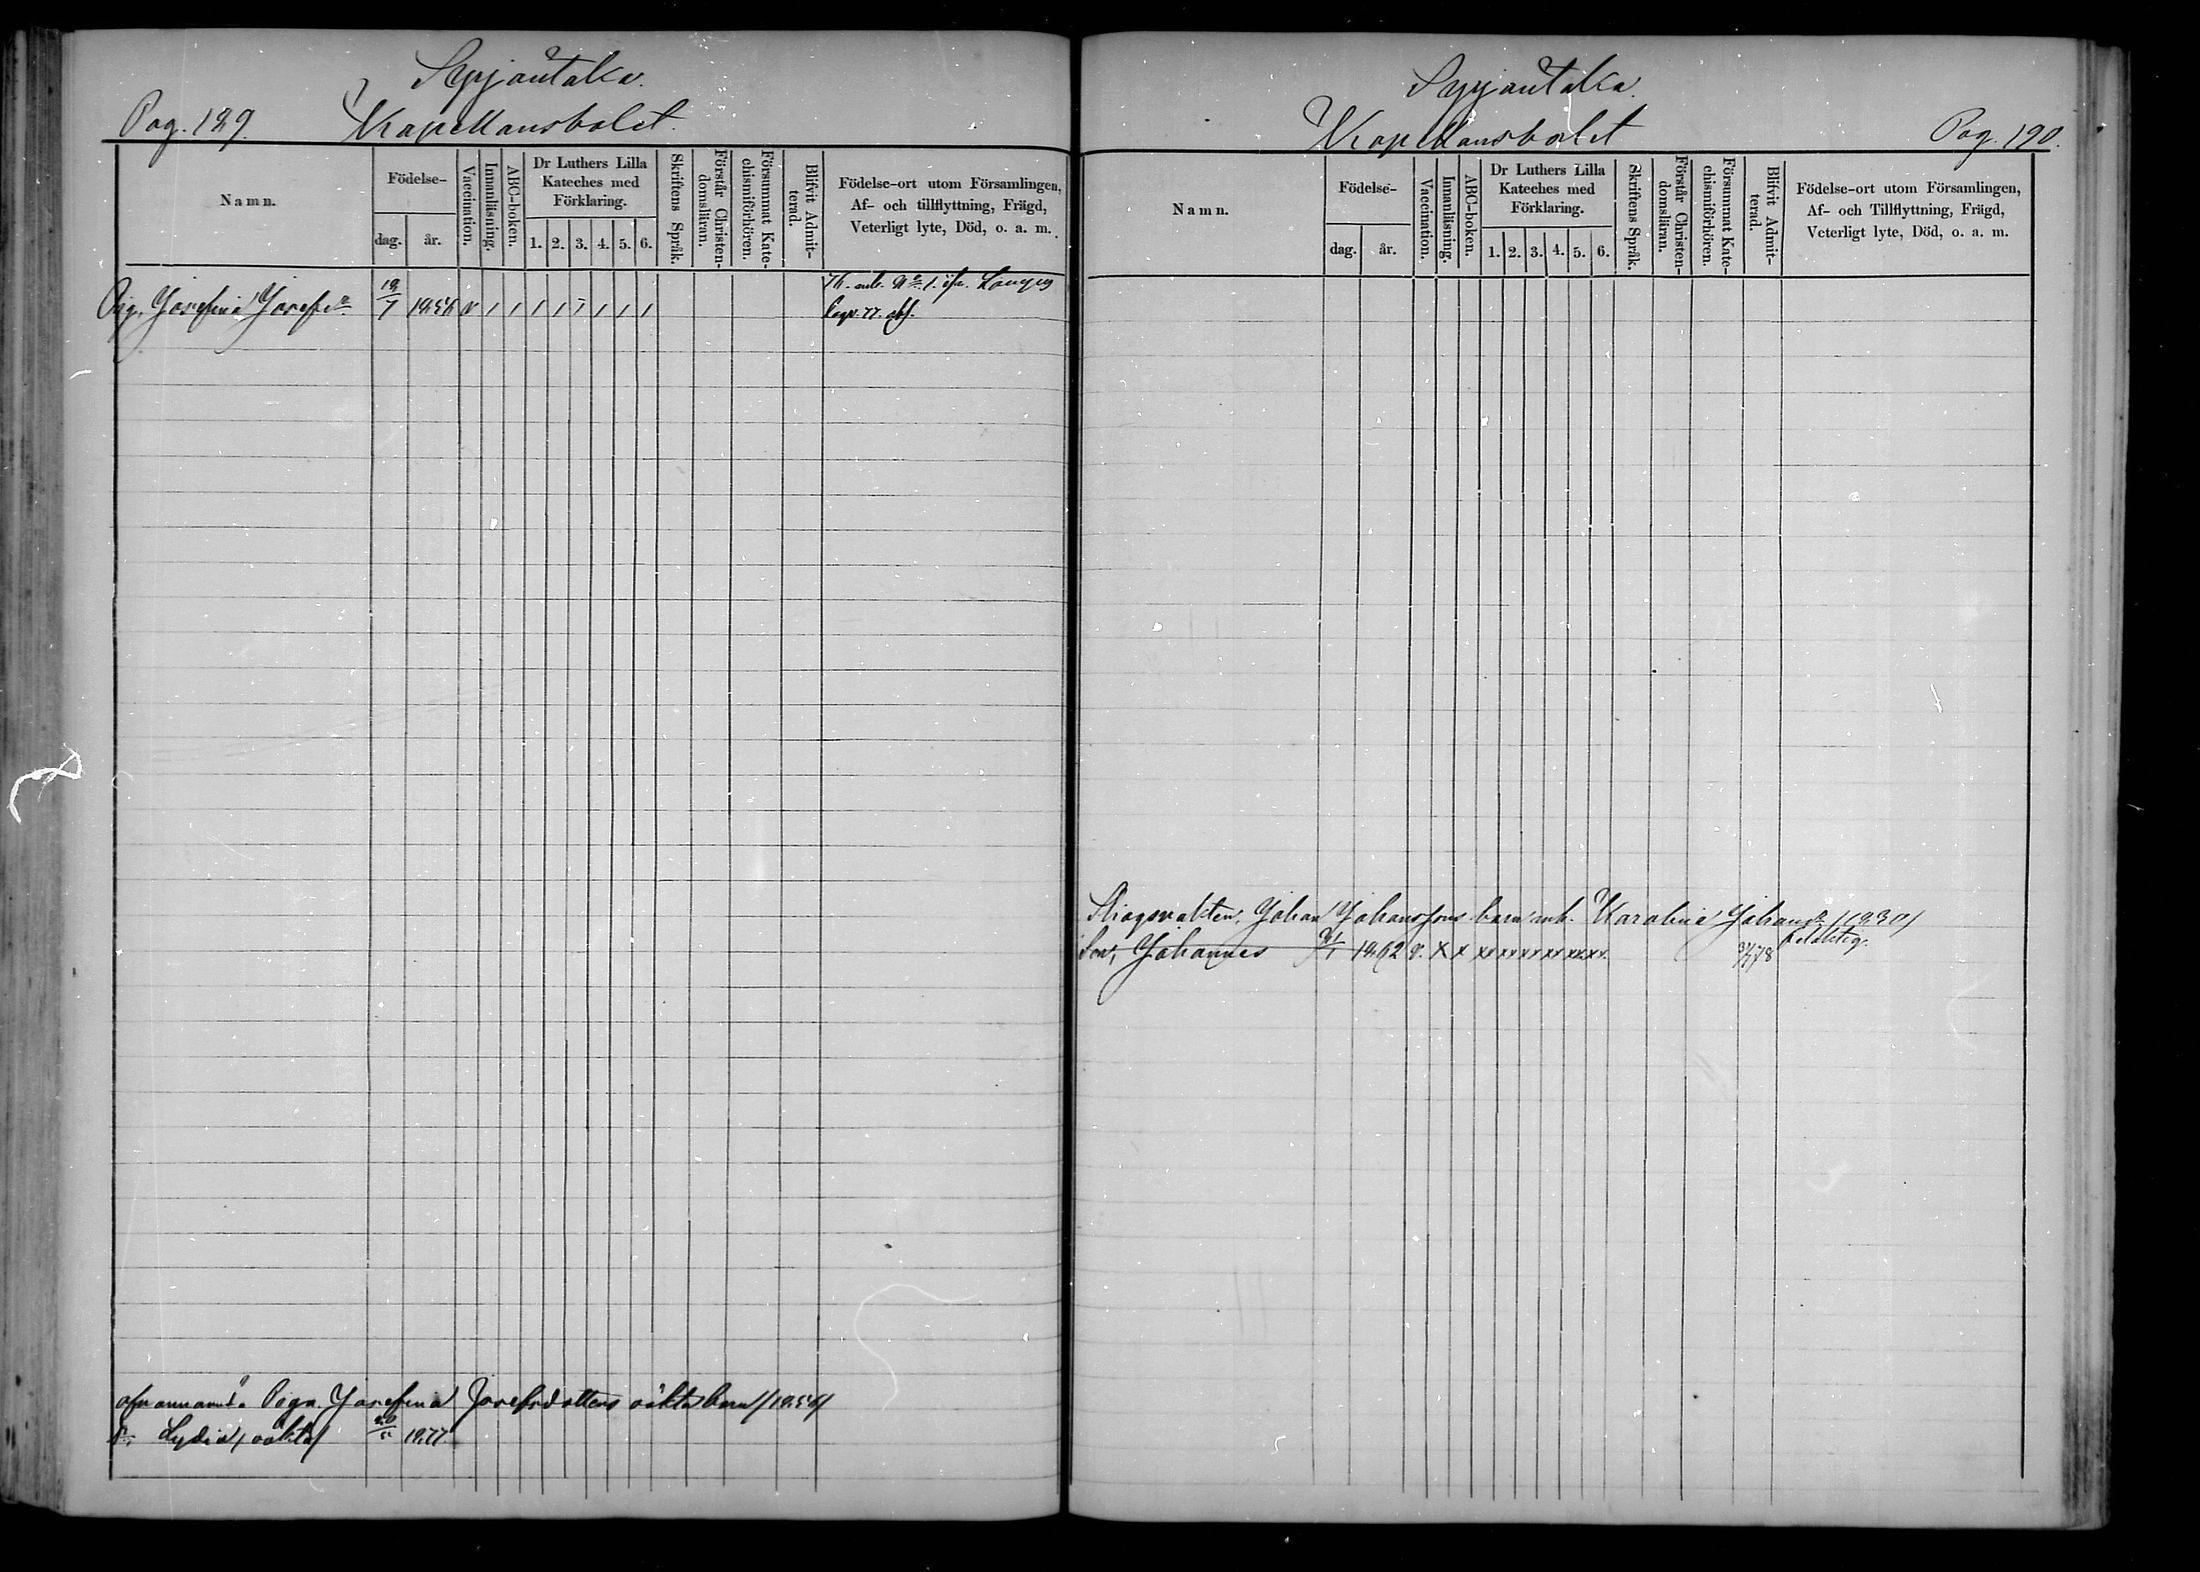 Syrjäntaka.
Pag. 189. Kapellansbolet.
Namn. Födelse- dag. år. Vaccination. Innanläsning. ABC-boken. Dr Luthers Lilla Kateches med Förklaring. 1. 2. 3. 4. 5. 6. Skriftens Språk. Förstår Christendomsläran. Försummat Katechismiförhören. Blifvit Admitterad. Födelse-ort utom Församlingen, Af- och tillflyttning, Frägd, Veterligt lyte, Död, o. a. m.
Pig. Josefina Josefsdr 19/7 1856 v / / / / / / / /
ofvannämnd Pigan Josefina Josefsdotters oäkta barn /1856/
Lydia /oäkta/ 1877.
Syrjäntaka.
Kapellansbolet Pag. 190.
Namn. Födelse- dag. år. Vaccination. Innanläsning. ABC-boken. Dr Luthers Lilla Kateches med Förklaring. 1. 2. 3. 4. 5. 6. Skriftens Språk. Förstår Christendomsläran. Försummat Katechismiförhören. Blifvit Admitterad. Födelse-ort utom Församlingen, Af- och Tillflyttning, Frägd, Veterligt lyte, Död, o. a. m.
Skogsvakten, Johan Johanssons barn Karolina Johansdr /1830/
Son, Johannes 1862 v. x x xx xx xx xx xx xx